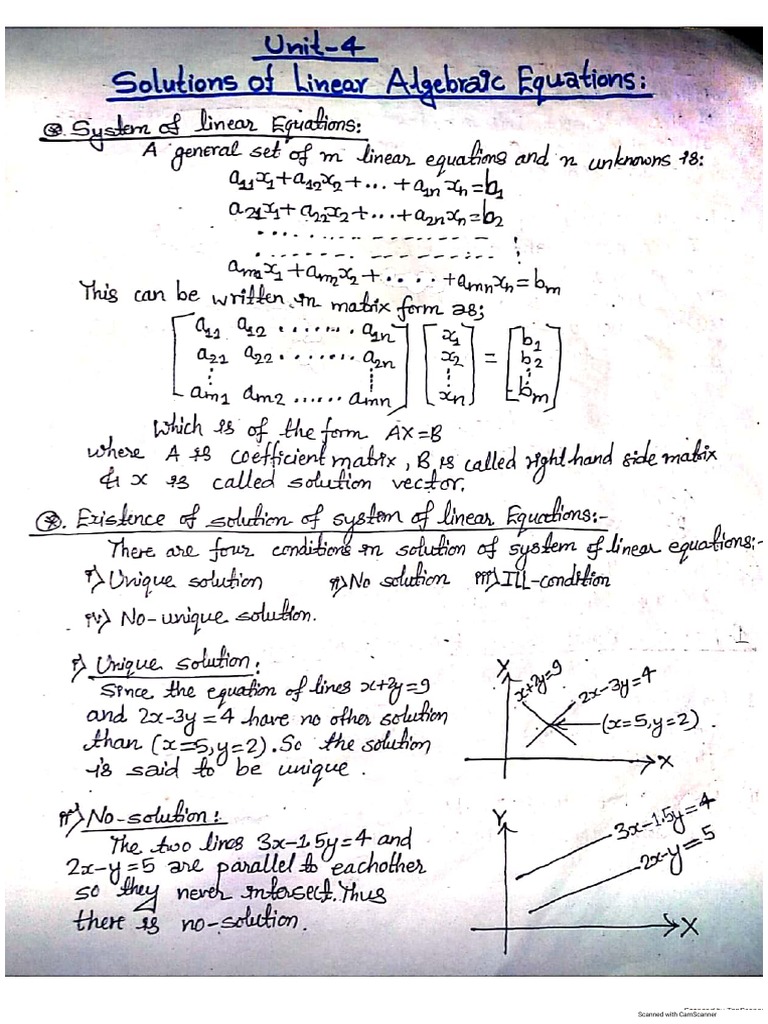 Unit-4
Solutions of Linear Algebraic Equations:
System of linear Equations:
A general set of m linear equations and n unknowns is:
a11x1+a12x2+...+a1nxn=b1
a21x1+a22x2+...+a2nxn=b2
am1x1+am2x2+.....+amnxn=bm
This can be written in matrix form as;
[a11 a12 ........ a1n] [x1] [b1]
[a21 a22 ........ a2n] [x2] = [b2]
[am1 am2 ...... amn] [xn] [bm]
Which is of the form AX=B
where A is coefficient matrix, B is called right hand side matrix
& x is called solution vector.
Existence of solution of system of linear Equations:-
There are four conditions in solution of system of linear equations:-
i) Unique solution ii) No solution iii) ILL-condition
iv) No-unique solution.
1
i) Unique solution:
Since the equation of lines x+2y=9
and 2x-3y=4 have no other solution
than (x=5,y=2). So the solution
is said to be unique.
X
x+2y=9
2x-3y=4
(x=5,y=2).
X
ii) No-solution:
The two lines 3x-1.5y=4 and
2x-y=5 are parallel to eachother
so they never intersect. Thus
there is no-solution.
Y
3x-1.5y=4
2x-y=5
X
Scanned with CamScanner